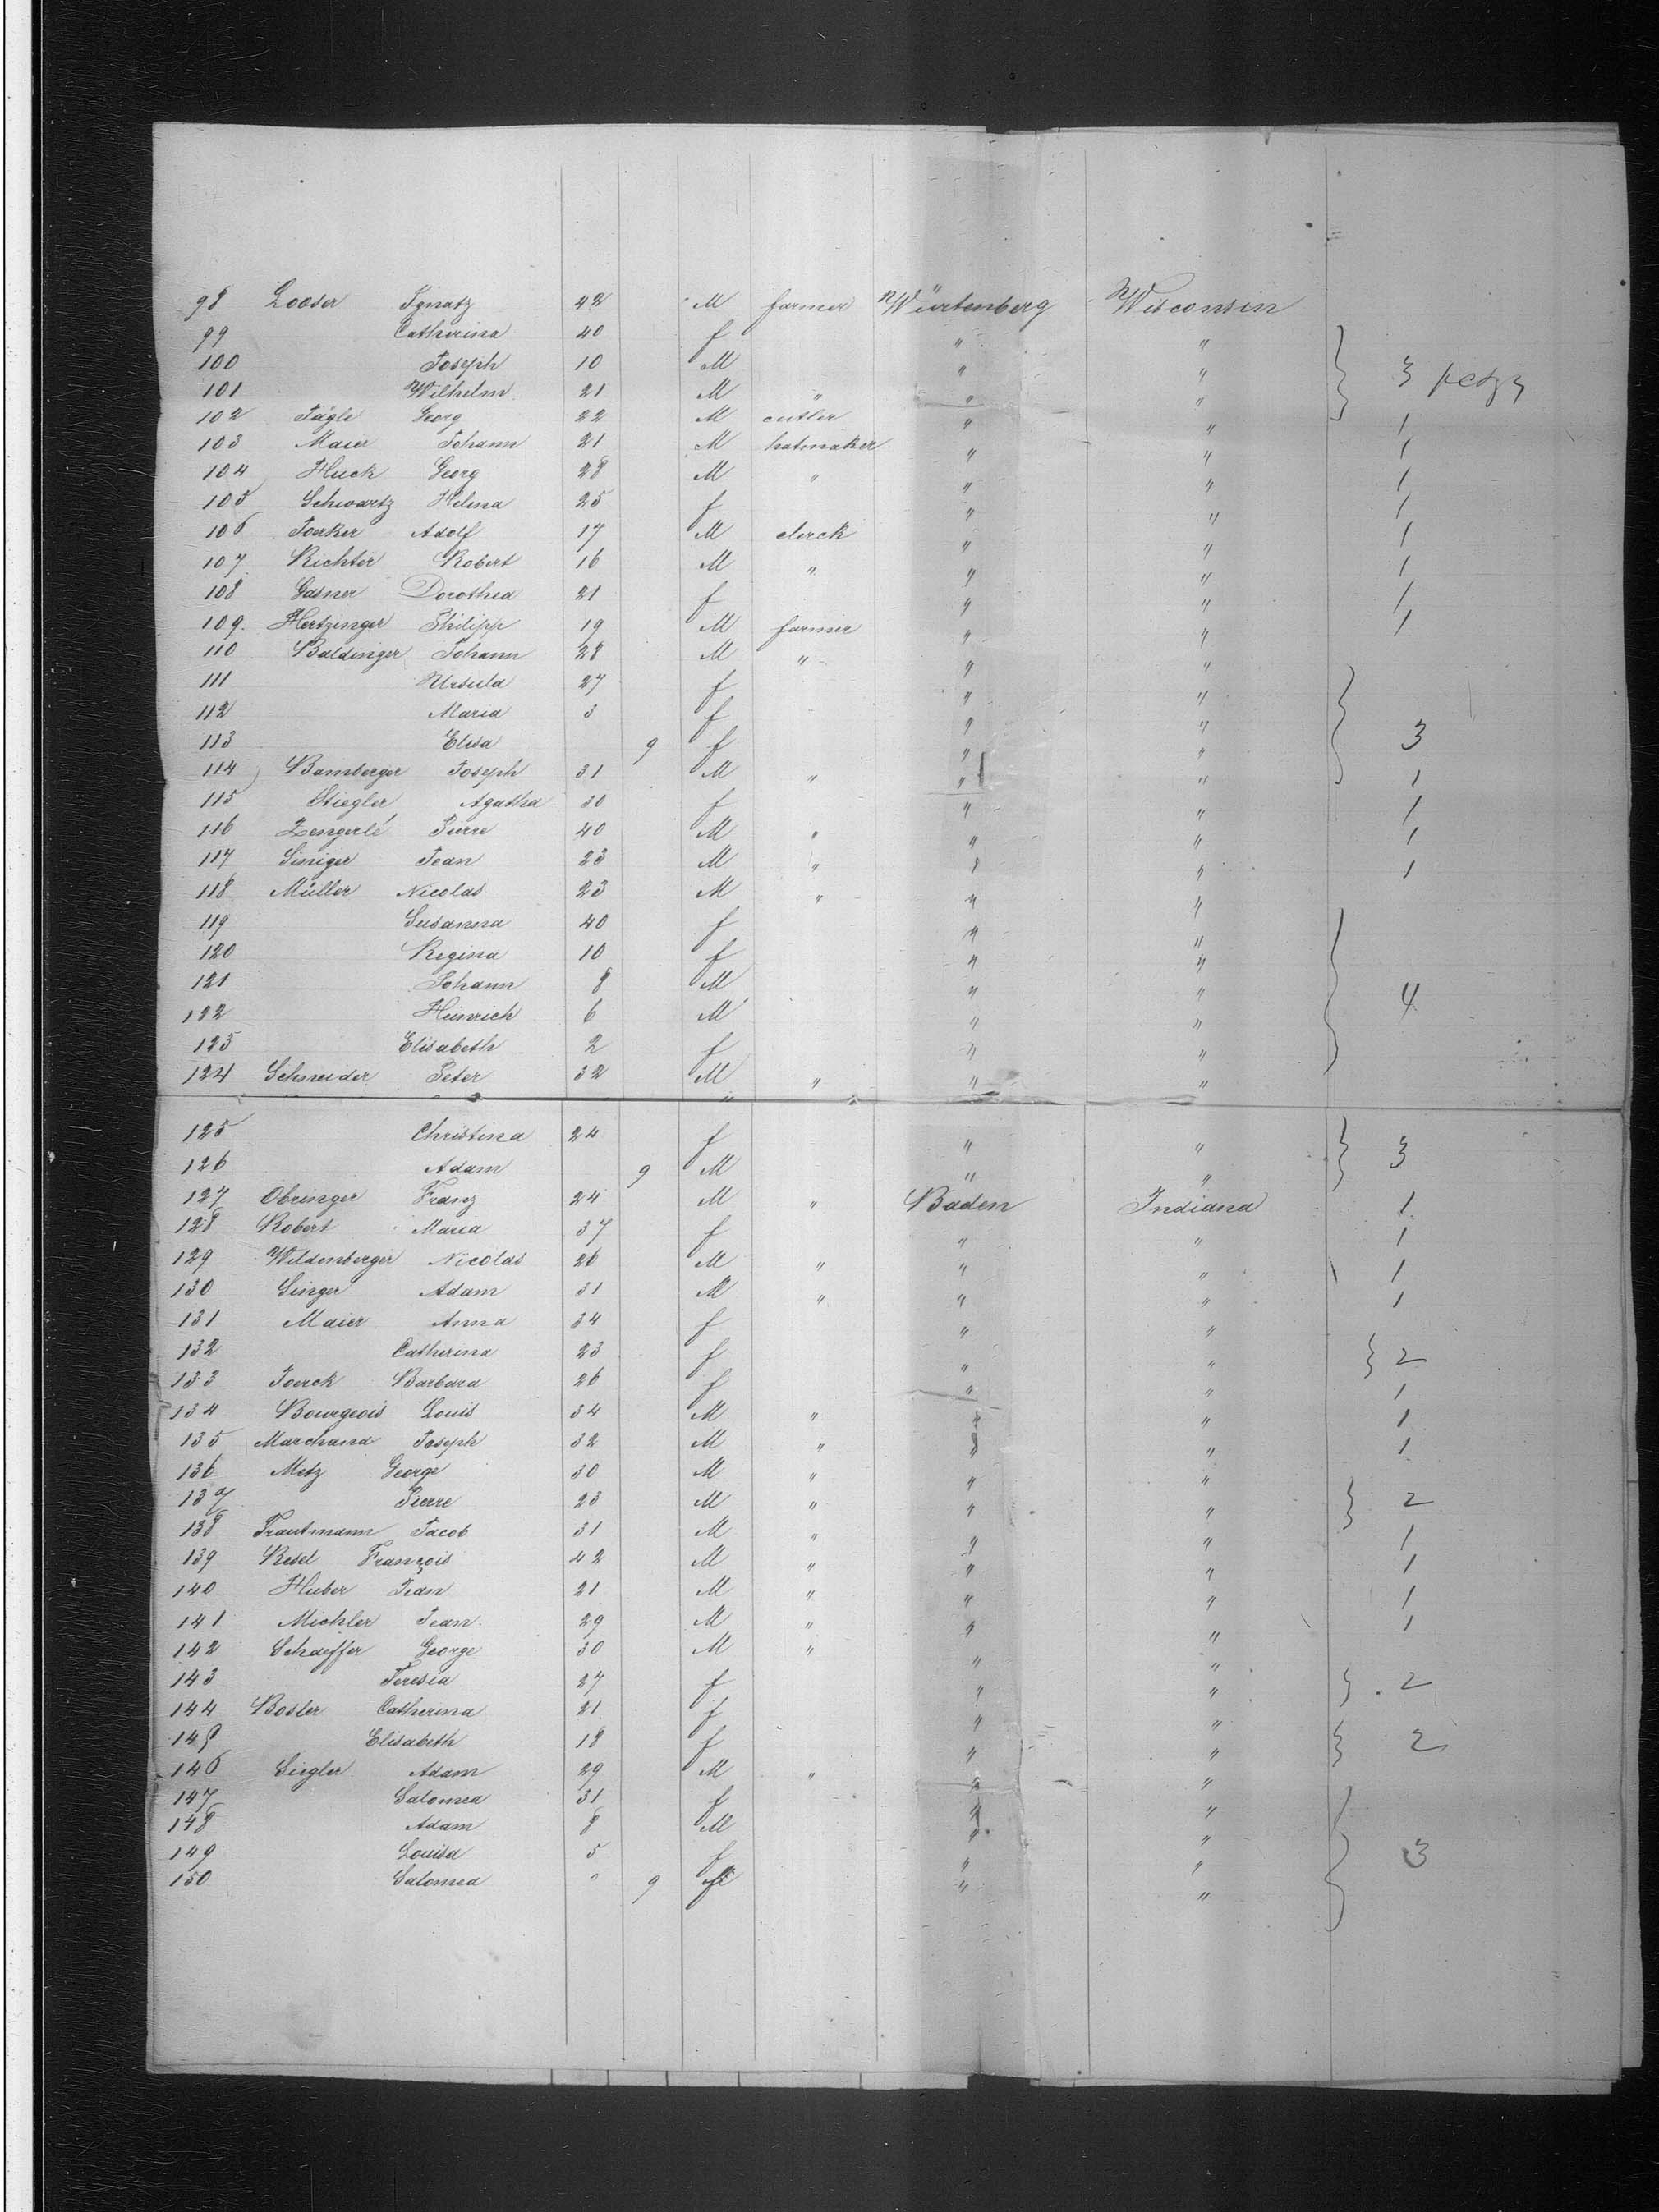 98 Looser Ignatz 42 M farmer Würtenberg Wisconsin
99 Catherina 40 f " "
100 Joseph 10 M " " 3 pckgs
101 Wilhelm 21 M " " "
102 Jägle Georg 22 M cutler " " 1
103 Maier Johann 21 M hatmaker " " 1
104 Huck Georg 28 M " " " 1
105 Schwartz Helena 25 f " " 1
106 Joerker Adolf 17 M clerck " " 1
107 Richter Robert 16 M " " " 1
108 Gasner Dorothea 21 f " " 1
109. Hertzinger Philipp 19 M farmer " " 1
110 Baldinger Johann 28 M " " "
111 Ursula 27 f " "
112 Maria 3 f " "
113 Elisa 9 f " " 3
114 Bamberger Joseph 31 M " " " 1
115 Stiegler Agatha 30 f " " 1
116 Zengerlé Pierre 40 M " " " 1
117 Siniger Jean 23 M " " " 1
118 Müller Nicolas 23 M " " "
119 Susanna 40 f " "
120 Regina 10 f " "
121 Johann 8 M " " 4
122 Heinrich 6 M " "
123 Elisabeth 2 f " "
124 Schneider Peter 32 M " " "
125 Christina 24 f " " 3
126 Adam 9 M " "
127 Obringer Franz 24 M " Baden Indiana 1
128 Robert Maria 37 f " " 1
129 Wildenberger Nicolas 26 M " " " 1
130 Singer Adam 31 M " " " 1
131 Maier Anna 34 f " "
132 Catherina 23 f " " 2
133 Joerck Barbara 26 f " " 1
134 Bourgeois Louis 34 M " " " 1
135 Marchand Joseph 32 M " " " 1
136 Metz George 30 M " " "
137 Pierre 23 M " " " 2
138 Trautmann Jacob 31 M " " " 1
139 Resel François 42 M " " " 1
140 Huber Jean 21 M " " " 1
141 Michler Jean. 29 M " " " 1
142 Schaeffer George 30 M " " "
143 Teresia 27 f " " 2
144 Bosler Catherina 21 f " "
145 Elisabeth 18 f " " 2
146 Siegler Adam 29 M " " "
147 Salomea 31 f " "
148 Adam 8 M " "
149 Louisa 5 f " " 3
150 Salomea " 9 f " "